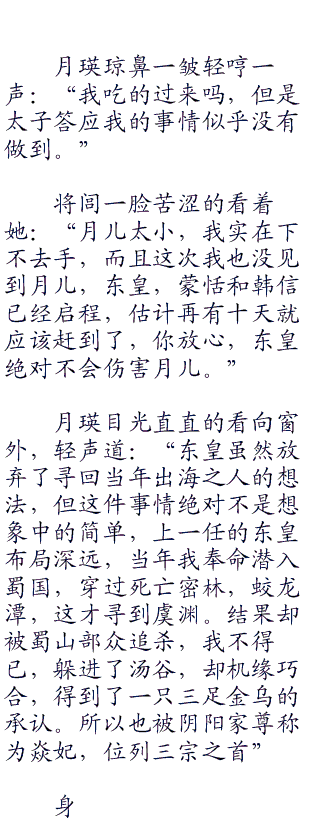 月瑛琼鼻一皱轻哼一
声：“我吃的过来吗，但是
太子答应我的事情似乎没有
做到。”
将闾一脸苦涩的看着
她：“月儿太小，我实在下
不去手，而且这次我也没见
到月儿，东皇，蒙恬和韩信
已经启程，估计再有十天就
应该赶到了，你放心，东皇
绝对不会伤害月儿。”
月瑛目光直直的看向窗
外，轻声道：“东皇虽然放
弃了寻回当年出海之人的想
法，但这件事情绝对不是想
象中的简单，上一任的东皇
布局深远，当年我奉命潜入
蜀国，穿过死亡密林，蛟龙
潭，这才寻到虞渊。结果却
被蜀山部众追杀，我不得
已，躲进了汤谷，却机缘巧
合，得到了一只三足金乌的
承认。所以也被阴阳家尊称
为焱妃，位列三宗之首”
身